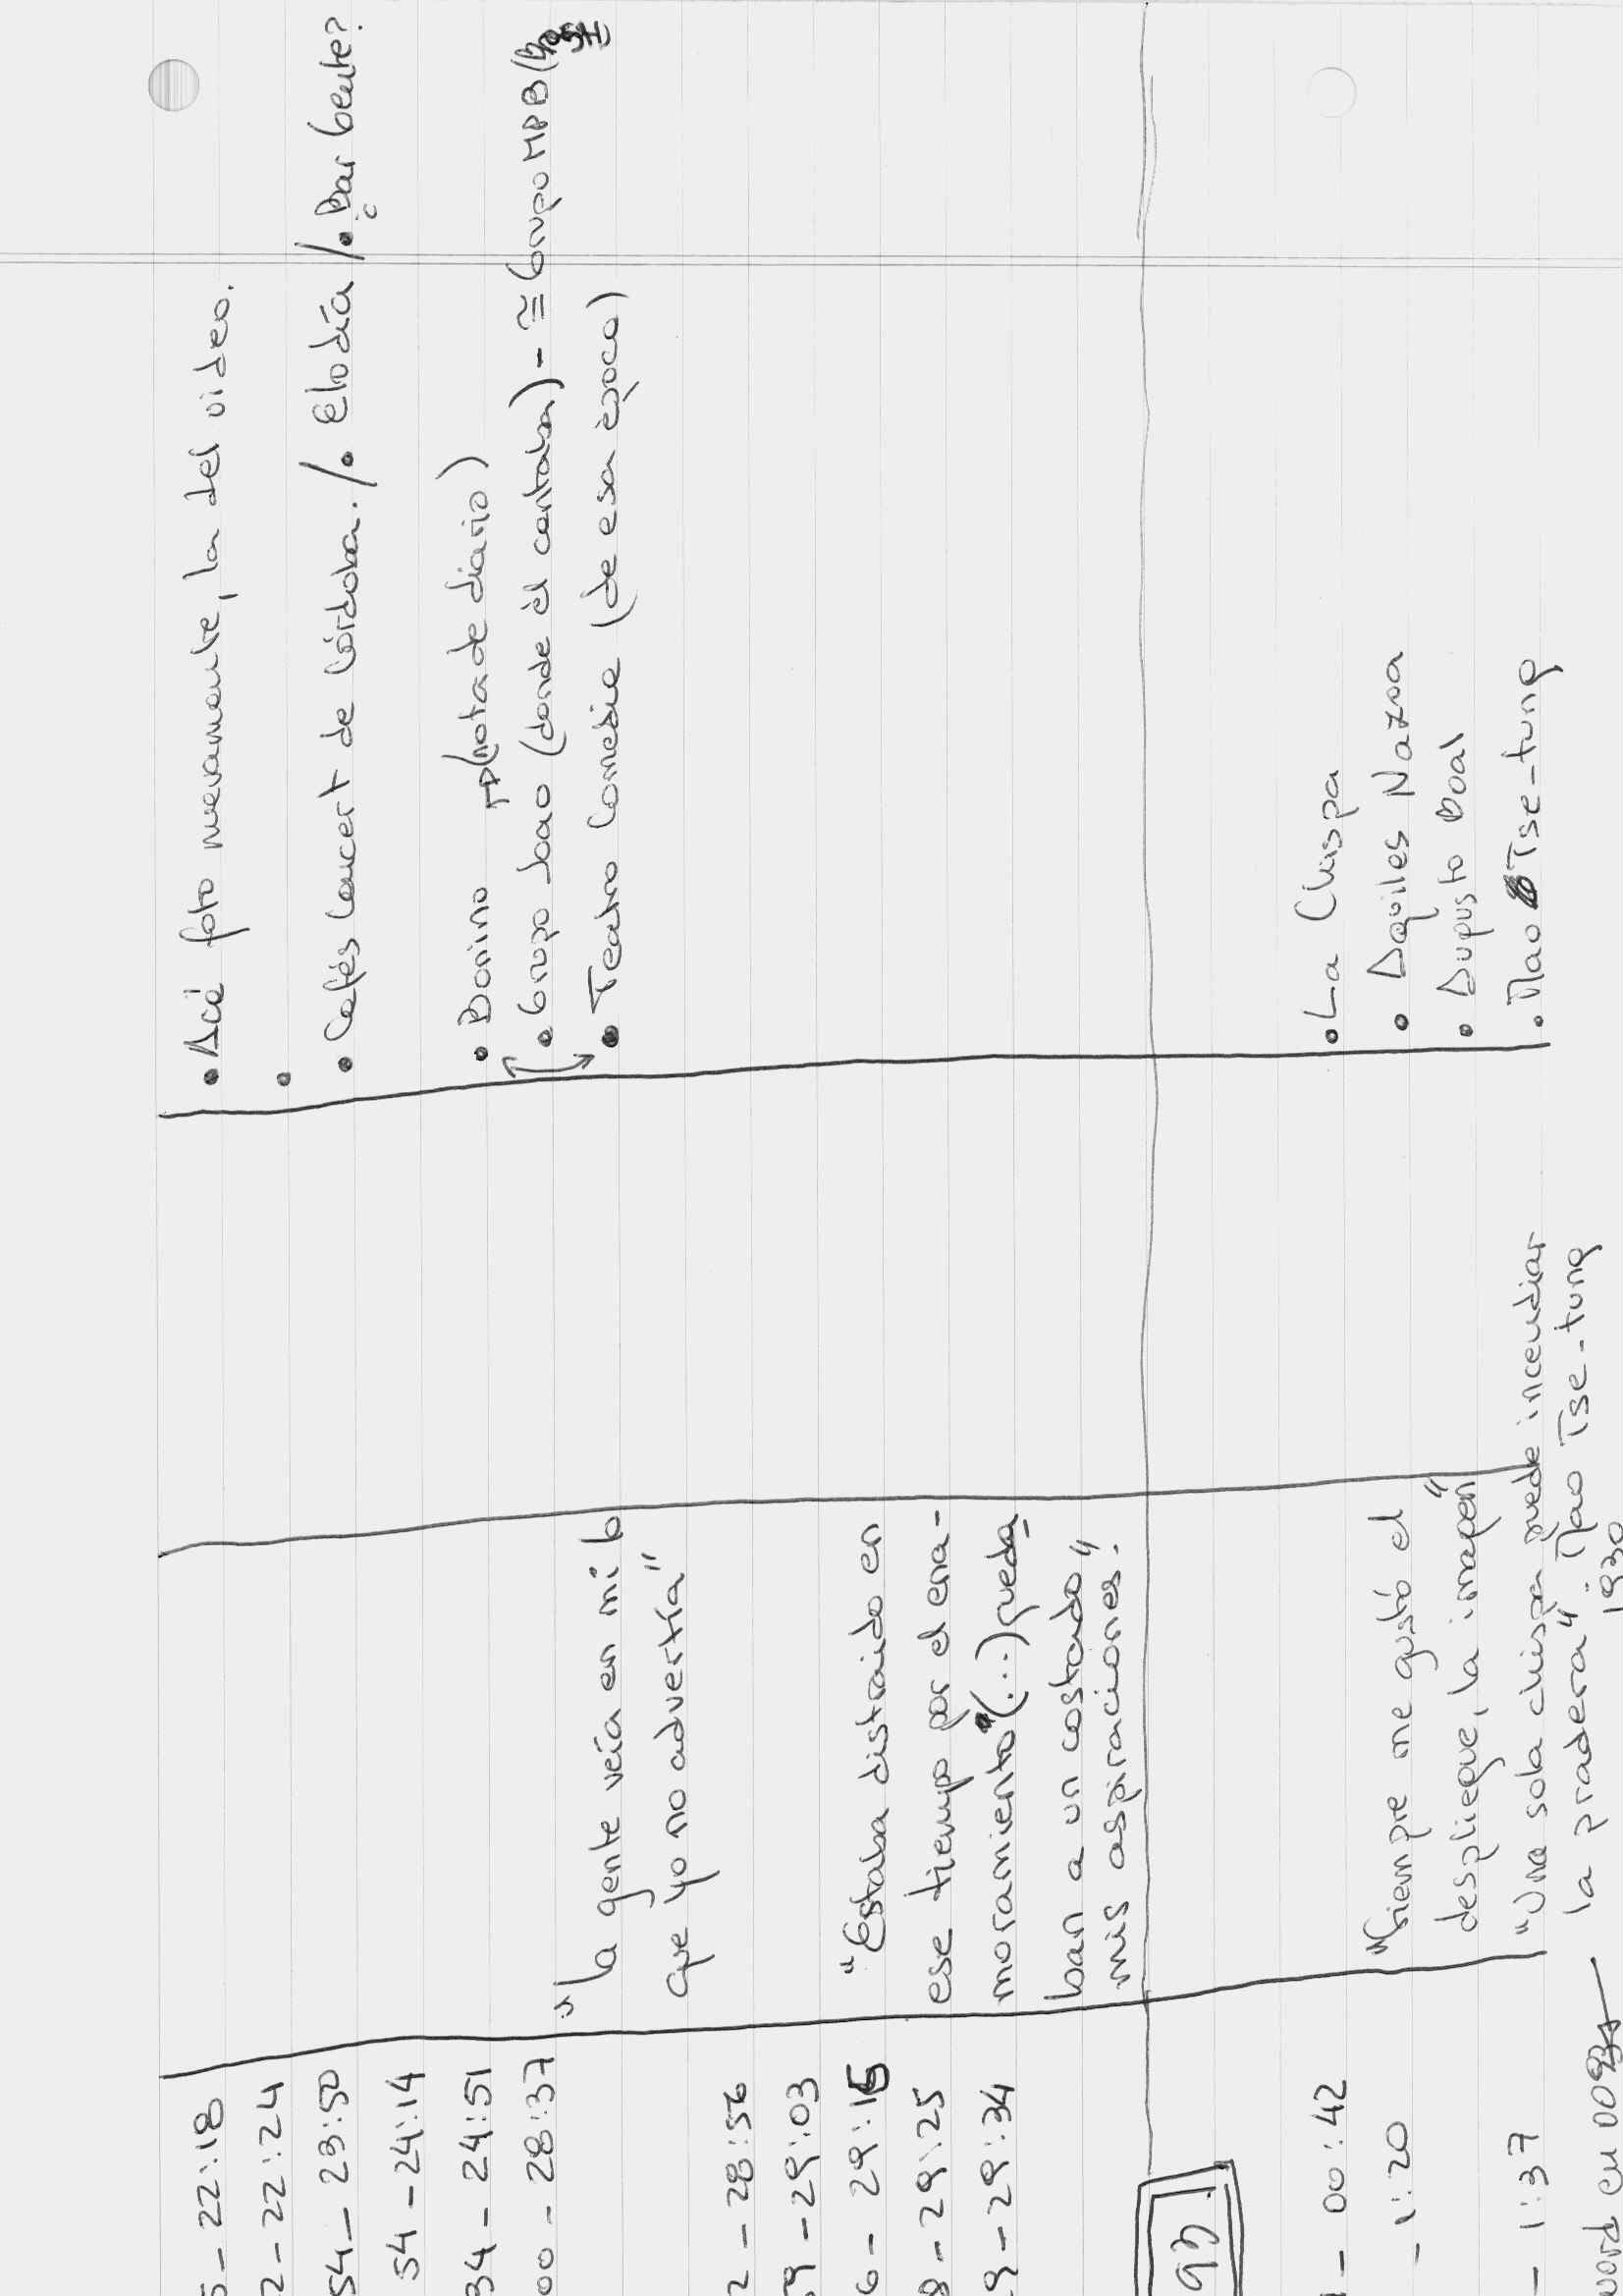 5 - 22:18 • Acá foto nuevamente, la del video.
2 - 22:24 •
54 - 23:50 • Cafés Concert de Córdoba. /. Elodía /. Bar Gente?
54 - 24:14
34 - 24:51 • Bonino (nota de diario)
00 - 28:37 • Grupo Joao (donde él cantaba) - ≅ Grupo MPB
"la gente veía en mí lo • Teatro Comedia (de esa época)
que yo no advertía"
2 - 28:56
59 - 29:03
6 - 29:15 "Estaba distraído en
8 - 29:25 ese tiempo por el ena-
9 - 29:34 moramiento" (...) queda
ban a un costado
mis aspiraciones."
93
- 00:42 • La Chispa
- 1:20 "Siempre me gustó el • Aquiles Nazoa
despliegue, la imagen" • Augusto Boal
- 1:37 "Una sola chispa puede incendiar • Mao Tse-tung
la pradera". Mao Tse-tung
word en 1930